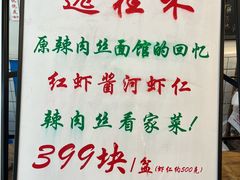 原辣肉丝面馆的回忆
红虾酱河虾仁
辣肉丝看家菜！
399块/盆(虾仁约500克)